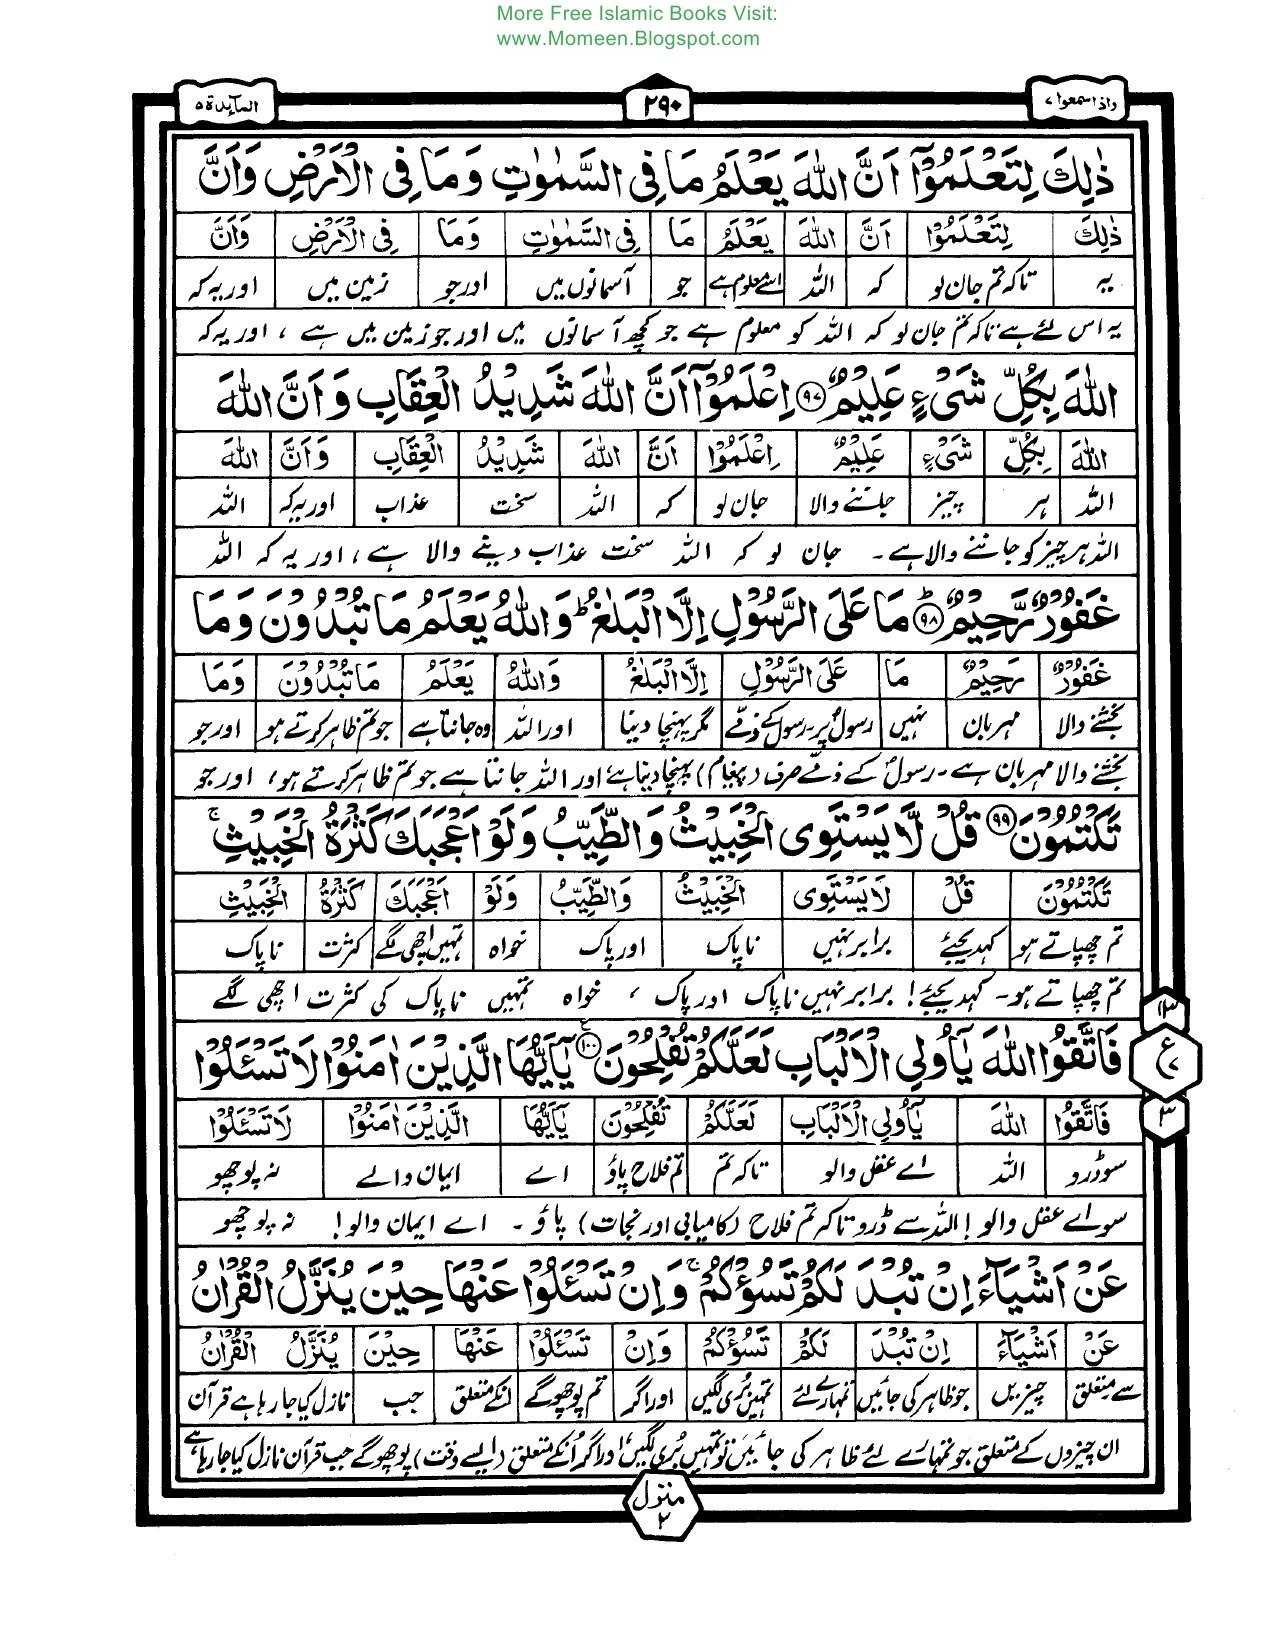 More Free Islamic Books Visit:
www.Momeen.Blogspot.com
واذا سمعوا ۷ ۲۹۰ المآىِٕدة ۵
ذٰلِكَ لِتَعْلَمُوْۤا اَنَّ اللّٰهَ یَعْلَمُ مَا فِی السَّمٰوٰتِ وَمَا فِی الْاَرْضِ وَاَنَّ
ذٰلِكَ لِتَعْلَمُوْۤا اَنَّ اللّٰهَ یَعْلَمُ مَا فِی السَّمٰوٰتِ وَمَا فِی الْاَرْضِ وَاَنَّ
یہ تاکہ تم جان لو کہ اللہ اسے معلوم ہے جو آسمانوں میں اور جو زمین میں اور یہ کہ
یہ اس لئے ہے تاکہ تم جان لو کہ اللہ کو معلوم ہے جو کچھ آسمانوں میں اور جو زمین میں ہے ، اور یہ کہ
اللّٰهَ بِكُلِّ شَیْءٍ عَلِیْمٌ ۹۷ اِعْلَمُوْۤا اَنَّ اللّٰهَ شَدِیْدُ الْعِقَابِ وَاَنَّ اللّٰهَ
اللّٰهَ بِكُلِّ شَیْءٍ عَلِیْمٌ اِعْلَمُوْۤا اَنَّ اللّٰهَ شَدِیْدُ الْعِقَابِ وَاَنَّ اللّٰهَ
اللہ ہر چیز جاننے والا جان لو کہ اللہ سخت عذاب اور یہ کہ اللہ
اللہ ہر چیز کو جاننے والا ہے ۔ جان لو کہ اللہ سخت عذاب دینے والا ہے ، اور یہ کہ اللہ
غَفُوْرٌ رَّحِیْمٌ ۹۸ مَا عَلَی الرَّسُوْلِ اِلَّا الْبَلٰغُ ؕ وَاللّٰهُ یَعْلَمُ مَا تُبْدُوْنَ وَمَا
غَفُوْرٌ رَحِیْمٌ مَا عَلَی الرَّسُوْلِ اِلَّا الْبَلٰغُ وَاللّٰهُ یَعْلَمُ مَا تُبْدُوْنَ وَمَا
بخشنے والا مہربان نہیں رسولؐ پر-رسول کے ذمّے مگر پہنچا دینا اور اللہ وہ جانتا ہے جو تم ظاہر کرتے ہو اور جو
بخشنے والا مہربان ہے ۔ رسولؐ کے ذمّے صرف (پیغام) پہنچا دینا ہے اور اللہ جانتا ہے جو تم ظاہر کرتے ہو ، اور جو
تَكْتُمُوْنَ ۹۹ قُلْ لَّا یَسْتَوِی الْخَبِیْثُ وَالطَّیِّبُ وَلَوْ اَعْجَبَكَ كَثْرَةُ الْخَبِیْثِ ۚ
تَكْتُمُوْنَ قُلْ لَا یَسْتَوِی الْخَبِیْثُ وَالطَّیِّبُ وَلَوْ اَعْجَبَكَ كَثْرَةُ الْخَبِیْثِ
تم چھپاتے ہو کہدیجئے برابر نہیں ناپاک اور پاک خواہ تمہیں اچھی لگے کثرت ناپاک
تم چھپاتے ہو ۔ کہدیجئے! برابر نہیں ناپاک اور پاک ، خواہ تمہیں ناپاک کی کثرت اچھی لگے
فَاتَّقُوا اللّٰهَ یٰۤاُولِی الْاَلْبَابِ لَعَلَّكُمْ تُفْلِحُوْنَ ۱۰۰ یٰۤاَیُّهَا الَّذِیْنَ اٰمَنُوْا لَا تَسْـَٔلُوْا
ع ۱۳ ۷ ۳
فَاتَّقُوْا اللّٰهَ یٰۤاُولِی الْاَلْبَابِ لَعَلَّكُمْ تُفْلِحُوْنَ یٰۤاَیُّهَا الَّذِیْنَ اٰمَنُوْا لَا تَسْـَٔلُوْا
سو ڈرو اللہ اے عقل والو تاکہ تم تم فلاح پاؤ اے ایمان والے نہ پوچھو
سو اے عقل والو! اللہ سے ڈرو تاکہ تم فلاح (کامیابی اور نجات) پاؤ ۔ اے ایمان والو! نہ پوچھو
عَنْ اَشْیَآءَ اِنْ تُبْدَ لَكُمْ تَسُؤْكُمْ ۚ وَاِنْ تَسْـَٔلُوْا عَنْهَا حِیْنَ یُنَزَّلُ الْقُرْاٰنُ
عَنْ اَشْیَآءَ اِنْ تُبْدَ لَكُمْ تَسُؤْكُمْ وَاِنْ تَسْـَٔلُوْا عَنْهَا حِیْنَ یُنَزَّلُ الْقُرْاٰنُ
سے متعلق چیزیں جو ظاہر کی جائیں تمہارے لئے تمہیں بُری لگیں اور اگر تم پوچھو گے انکے متعلق جب نازل کیا جا رہا ہے قرآن
ان چیزوں کے متعلق جو تمہارے لئے ظاہر کی جائیں تو تمہیں بُری لگیں، اور اگر اُنکے متعلق (ایسے وقت) پوچھو گے جب قرآن نازل کیا جا رہا ہے
منزل ۲